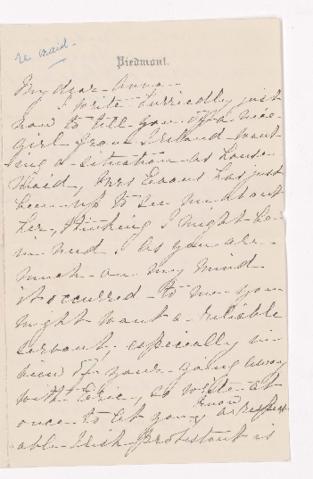 re maid.
Piedmont.
My dear Anna -
I write hurriedly just
now to tell you of a nice
girl from Ireland want-
ing a situation as house
maid, Mrs Evans has just
been up to see me about
her, thinking I might be
in need. As you are
much on my mind
it occurred to me you
might want a reliable
servant, especially in
view of your going away
with Eric, so write at
once to let you know a respect
able Irish protestant is